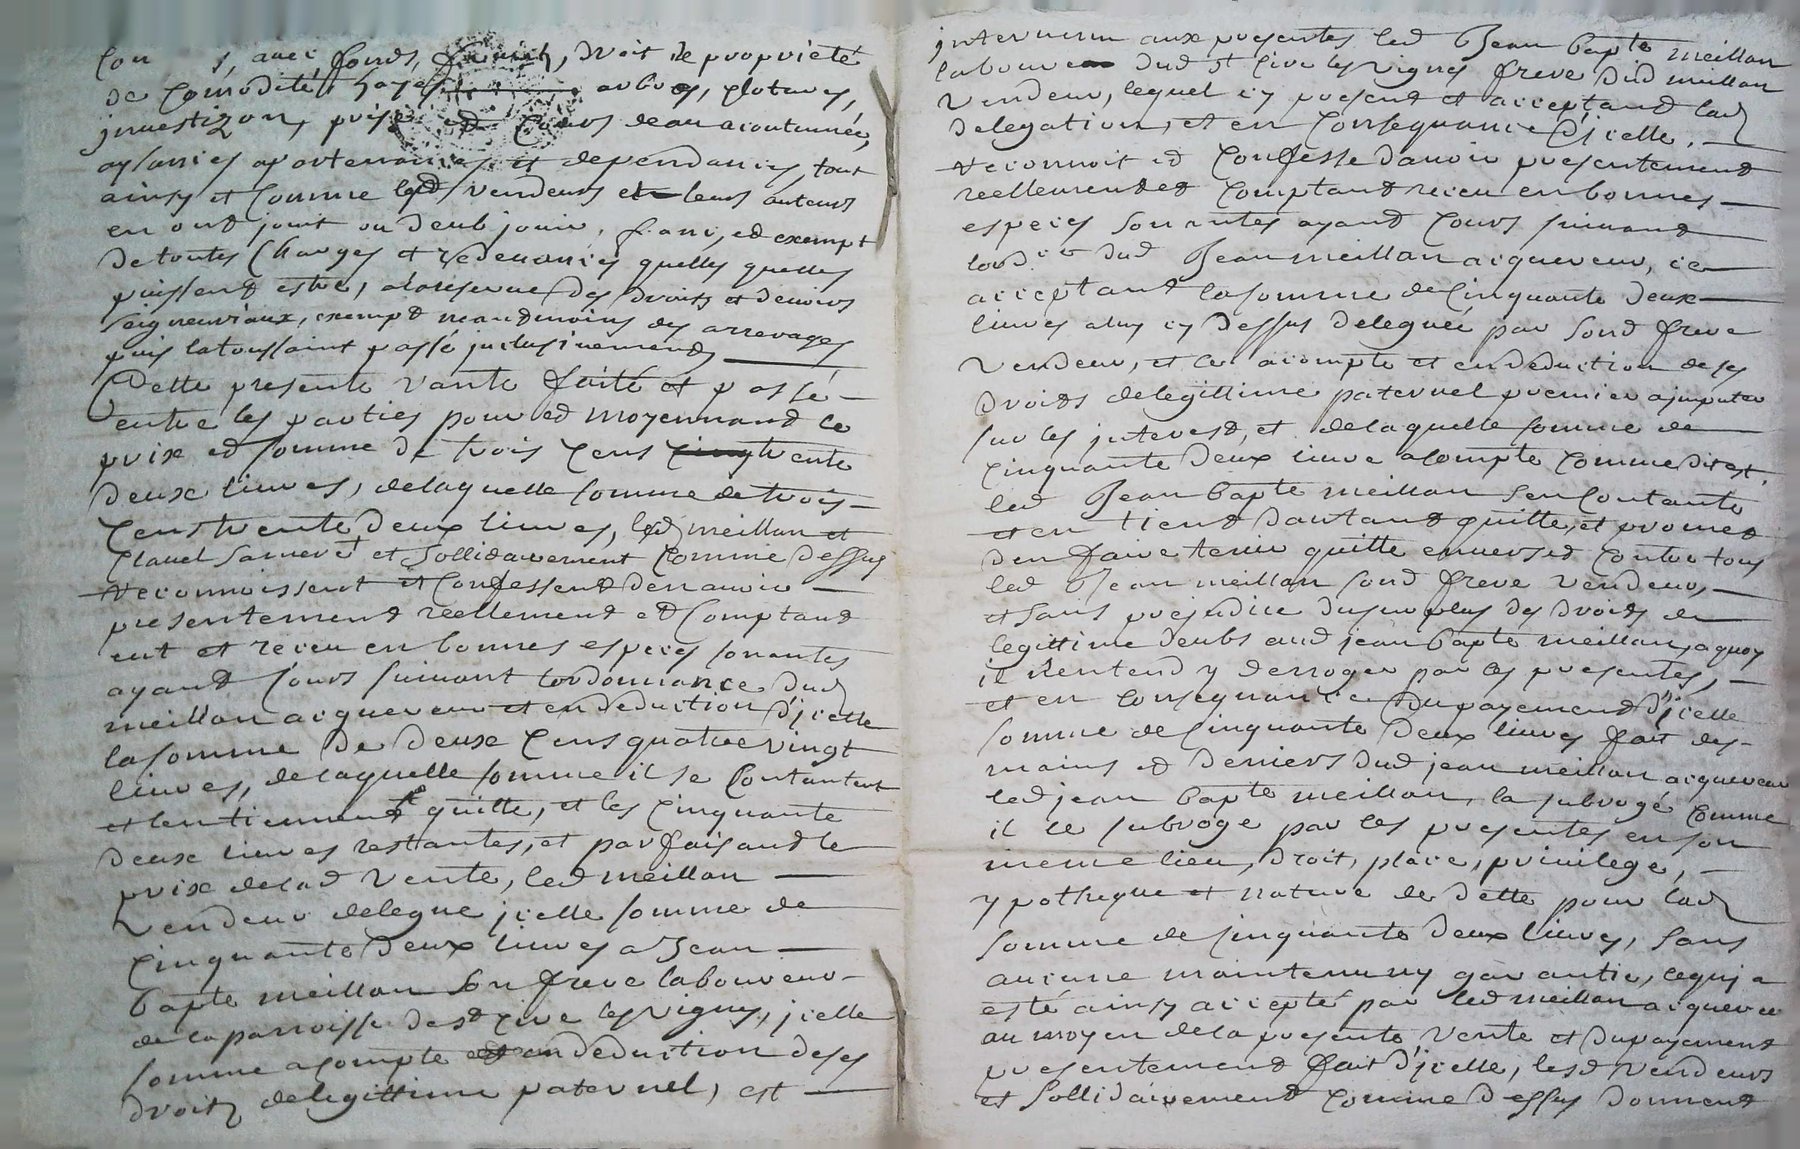 avec fonds, fruich, droit de proprieté
de comodités hayes arbres, plotures,
investizon, prise et cours deau acoutumée,
aysances apartenances et dependances, tout
ainsy et comme lesd vendeurs et leurs auteurs
en ont jouit ou deub jouir, franc, et exempt
de toutes Charges et redevances quelles quelles
puissent estre, alareserve des droits et devoirs
seigneuriaux, exempt neandmoins des arrerages
puis latoussaint passé jnclusivement
Cette presente vante faite et passé
entre les parties pour et moyennand le
prix et somme de trois cens trente
deux livres, delaquelle somme de trois
cens trente deux livres, lesd meillan et
et sollidairement comme dessus
reconnoissent et Confessent den avoir
presentement reellement et Comptand
eut et receu en bonnes especes sonantes
ayand cours suivant lordonnance dud
meillan acquereur et en deduction djcelle
la somme de deux cens quatre vingt
livres, delaquelle somme il se Contantent
et len tiennent quitte, et les cinquante
deux livres restantes, et parfaisand le
prix delad vente, led meillan
vendeur delegue jcelle somme de
cinquante deux livres a Jean
bapte meillan son frere laboureur
de la parroisse de st cire les vignes, jcelle
somme acompte et en deduction deses
droitz delegittime paternel, est
jntervenu aux presentes led Jean bapte meillan
laboureur dud st cire les vignes frere dud meillan
vendeur, lequel cy present et acceptand lad
delegation, et en consequance djcelle,
reconnoit et Confesse davoir presentement
reellement et comptand receu en bonnes
especes sonantes ayand cours suivand
lord.ce dud Jean meillan acquereur, ce
acceptant la somme de cinquante deux
livres aluy cy dessus deleguée par sond frere
vendeur, et ce acompte et en deduction de ses
droits delegittime paternel premier ajmputer
sur les jnterest, et delaquelle somme de
cinquante deux livre acompte comme dit est,
led Jean bapte meillan sen Contante
et en tiend dautand quitte, et promet
den faire tenir quitte envers et contre tous
led Jean meillan sond frere vendeur,
et sans prejudice dusurplus des droits de
legittime deubs aud jean bapte meillan, aquoy
il n'entend y derroger par ces presentes,
et en consequance du payement djcelle
somme de cinquante deux livres fait des
mains et deniers dud jean meillan acquereur
led jean bapte meillan, la subrogé comme
il le subroge par ces presentes en son
meme lieu, droit, place, privilege,
ypotheque et nature de dette pour lad
somme de cinquante deux livres, sans
aucune maintenuny garantie, cequj a
esté ainsy accepté par led meillan acquereur
au moyen de la presente vente et dupayement
presentement fait djcelle, lesd vendeurs
et sollidairement comme dessus donnent